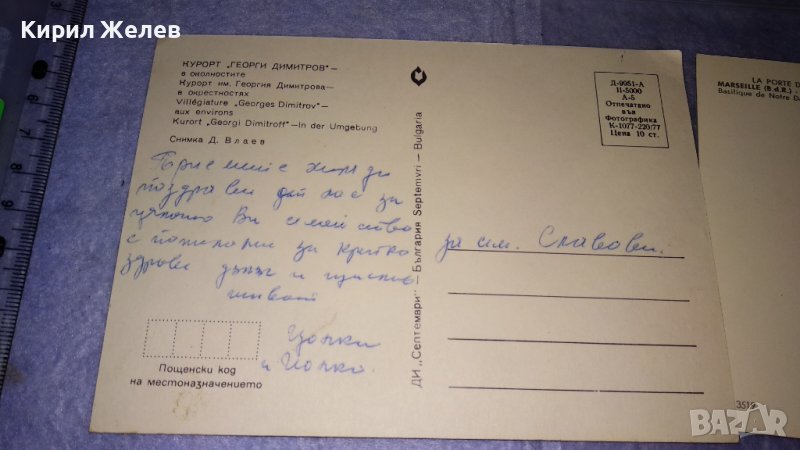 Кирил Желев
КУРОРТ „ГЕОРГИ ДИМИТРОВ"—
в околностите
Курорт им. Георгия Димитрова—
в окрестностях
Villégiature „Georges Dimitrov"—
aux environs
Kurort „Georgi Dimitroff"—In der Umgebung
Снимка Д. Влаев
Приемете хиляди
поздрави от нас за
цялото Ви семейство
с пожелания за крепко
здраве дълъг и щастлив
живот
Цонка
и Цонко.
Пощенски код
на местоназначението
ДИ „Септември" — България Septemvri — Bulgaria
Д-9951-А
II-5000
А-5
Отпечатано
във
Фотографика
К-1077-220/77
Цена 10 ст.
за сем. Славови.
LA PORTE D
MARSEILLE (B.d.R.)
Basilique de Notre Da
3519
BAZAR